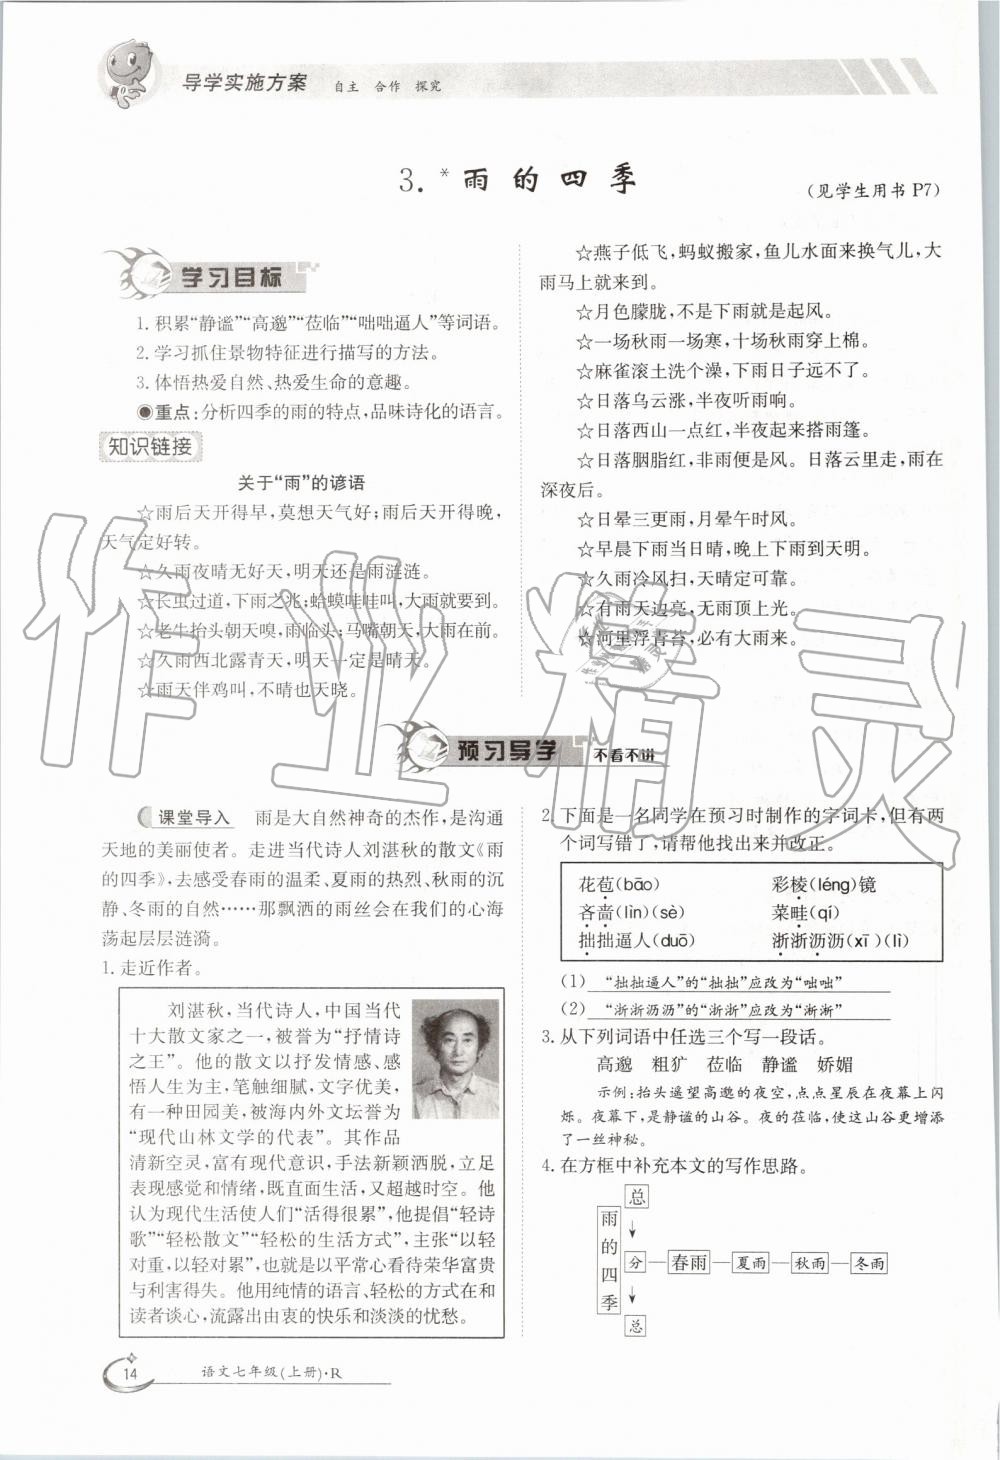 导学实施方案 自主 合作 探究
3.*雨的四季
(见学生用书 P7)
学习目标
1. 积累“静谧”“高邈”“莅临”“咄咄逼人”等词语。
2. 学习抓住景物特征进行描写的方法。
3. 体悟热爱自然、热爱生命的意趣。
◉重点:分析四季的雨的特点,品味诗化的语言。
知识链接
关于“雨”的谚语
☆雨后天开得早,莫想天气好;雨后天开得晚,
天气定好转。
☆久雨夜晴无好天,明天还是雨涟涟。
☆长虫过道,下雨之兆;蛤蟆哇哇叫,大雨就要到。
☆老牛抬头朝天嗅,雨临头;马嘴朝天,大雨在前。
☆久雨西北露青天,明天一定是晴天。
☆雨天伴鸡叫,不晴也天晓。
☆燕子低飞,蚂蚁搬家,鱼儿水面来换气儿,大
雨马上就来到。
☆月色朦胧,不是下雨就是起风。
☆一场秋雨一场寒,十场秋雨穿上棉。
☆麻雀滚土洗个澡,下雨日子远不了。
☆日落乌云涨,半夜听雨响。
☆日落西山一点红,半夜起来搭雨篷。
☆日落胭脂红,非雨便是风。日落云里走,雨在
深夜后。
☆日晕三更雨,月晕午时风。
☆早晨下雨当日晴,晚上下雨到天明。
☆久雨冷风扫,天晴定可靠。
☆有雨天边亮,无雨顶上光。
☆河里浮青苔,必有大雨来。
预习导学 不看不讲
课堂导入 雨是大自然神奇的杰作,是沟通
天地的美丽使者。走进当代诗人刘湛秋的散文《雨
的四季》,去感受春雨的温柔、夏雨的热烈、秋雨的沉
静、冬雨的自然……那飘洒的雨丝会在我们的心海
荡起层层涟漪。
1. 走近作者。
刘湛秋,当代诗人,中国当代
十大散文家之一,被誉为“抒情诗
之王”。他的散文以抒发情感、感
悟人生为主,笔触细腻,文字优美,
有一种田园美,被海内外文坛誉为
“现代山林文学的代表”。其作品
清新空灵,富有现代意识,手法新颖洒脱,立足
表现感觉和情绪,既直面生活,又超越时空。他
认为现代生活使人们“活得很累”,他提倡“轻诗
歌”“轻松散文”“轻松的生活方式”,主张“以轻
对重,以轻对累”,也就是以平常心看待荣华富贵
与利害得失。他用纯情的语言、轻松的方式在和
读者谈心,流露出由衷的快乐和淡淡的忧愁。
2. 下面是一名同学在预习时制作的字词卡,但有两
个词写错了,请帮他找出来并改正。
花苞(bāo) 彩棱(léng)镜
吝啬(lìn)(sè) 菜畦(qí)
拙拙逼人(duō) 浙浙沥沥(xī)(lì)
(1) “拙拙逼人”的“拙拙”应改为“咄咄”
(2) “浙浙沥沥”的“浙浙”应改为“淅淅”
3. 从下列词语中任选三个写一段话。
高邈 粗犷 莅临 静谧 娇媚
示例:抬头遥望高邈的夜空,点点星辰在夜幕上闪
烁。夜幕下,是静谧的山谷。夜的莅临,使这山谷更增添
了一丝神秘。
4. 在方框中补充本文的写作思路。
雨的四季
总
分 春雨 夏雨 秋雨 冬雨
总
14 语文七年级(上册)·R
作业精灵